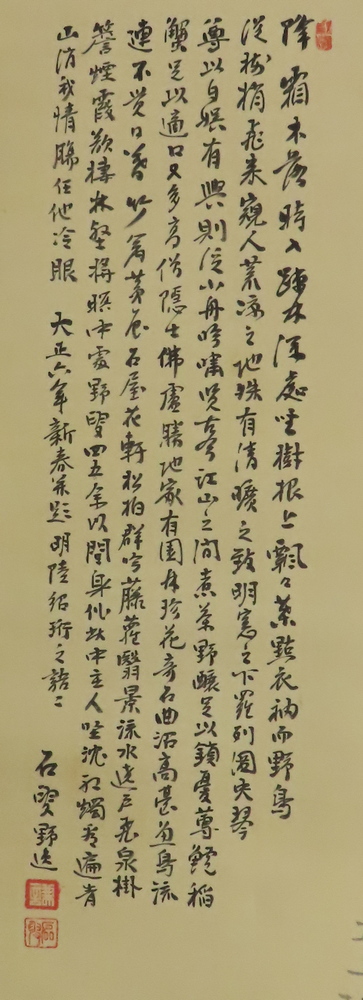 降霜木落時入疎林深處坐樹根上飄々葉點衣袖而野鳥
從樹梢飛來窺人荒涼之地殊有清曠之致明窓之下羅列圖史琴
尊以自娛有興則泛小舟吟嘯覽古江山之間煮茶野釀足以鎖憂蓴鱸稻
蟹足以適口又多高僧隱士佛廬勝地家有園林珍花奇石曲沼高臺魚鳥流
連不覺日茅屋石屋花軒松柏群吟藤蘿翳景流水遶戶飛泉掛
簷煙霞欲棲林壑將暝中處野叟四五余以閒身作此中主人坐沈紅燭看遍青
山消我情腸任他冷眼 大正六年新春并題明陸紹珩之語
石叟野逸